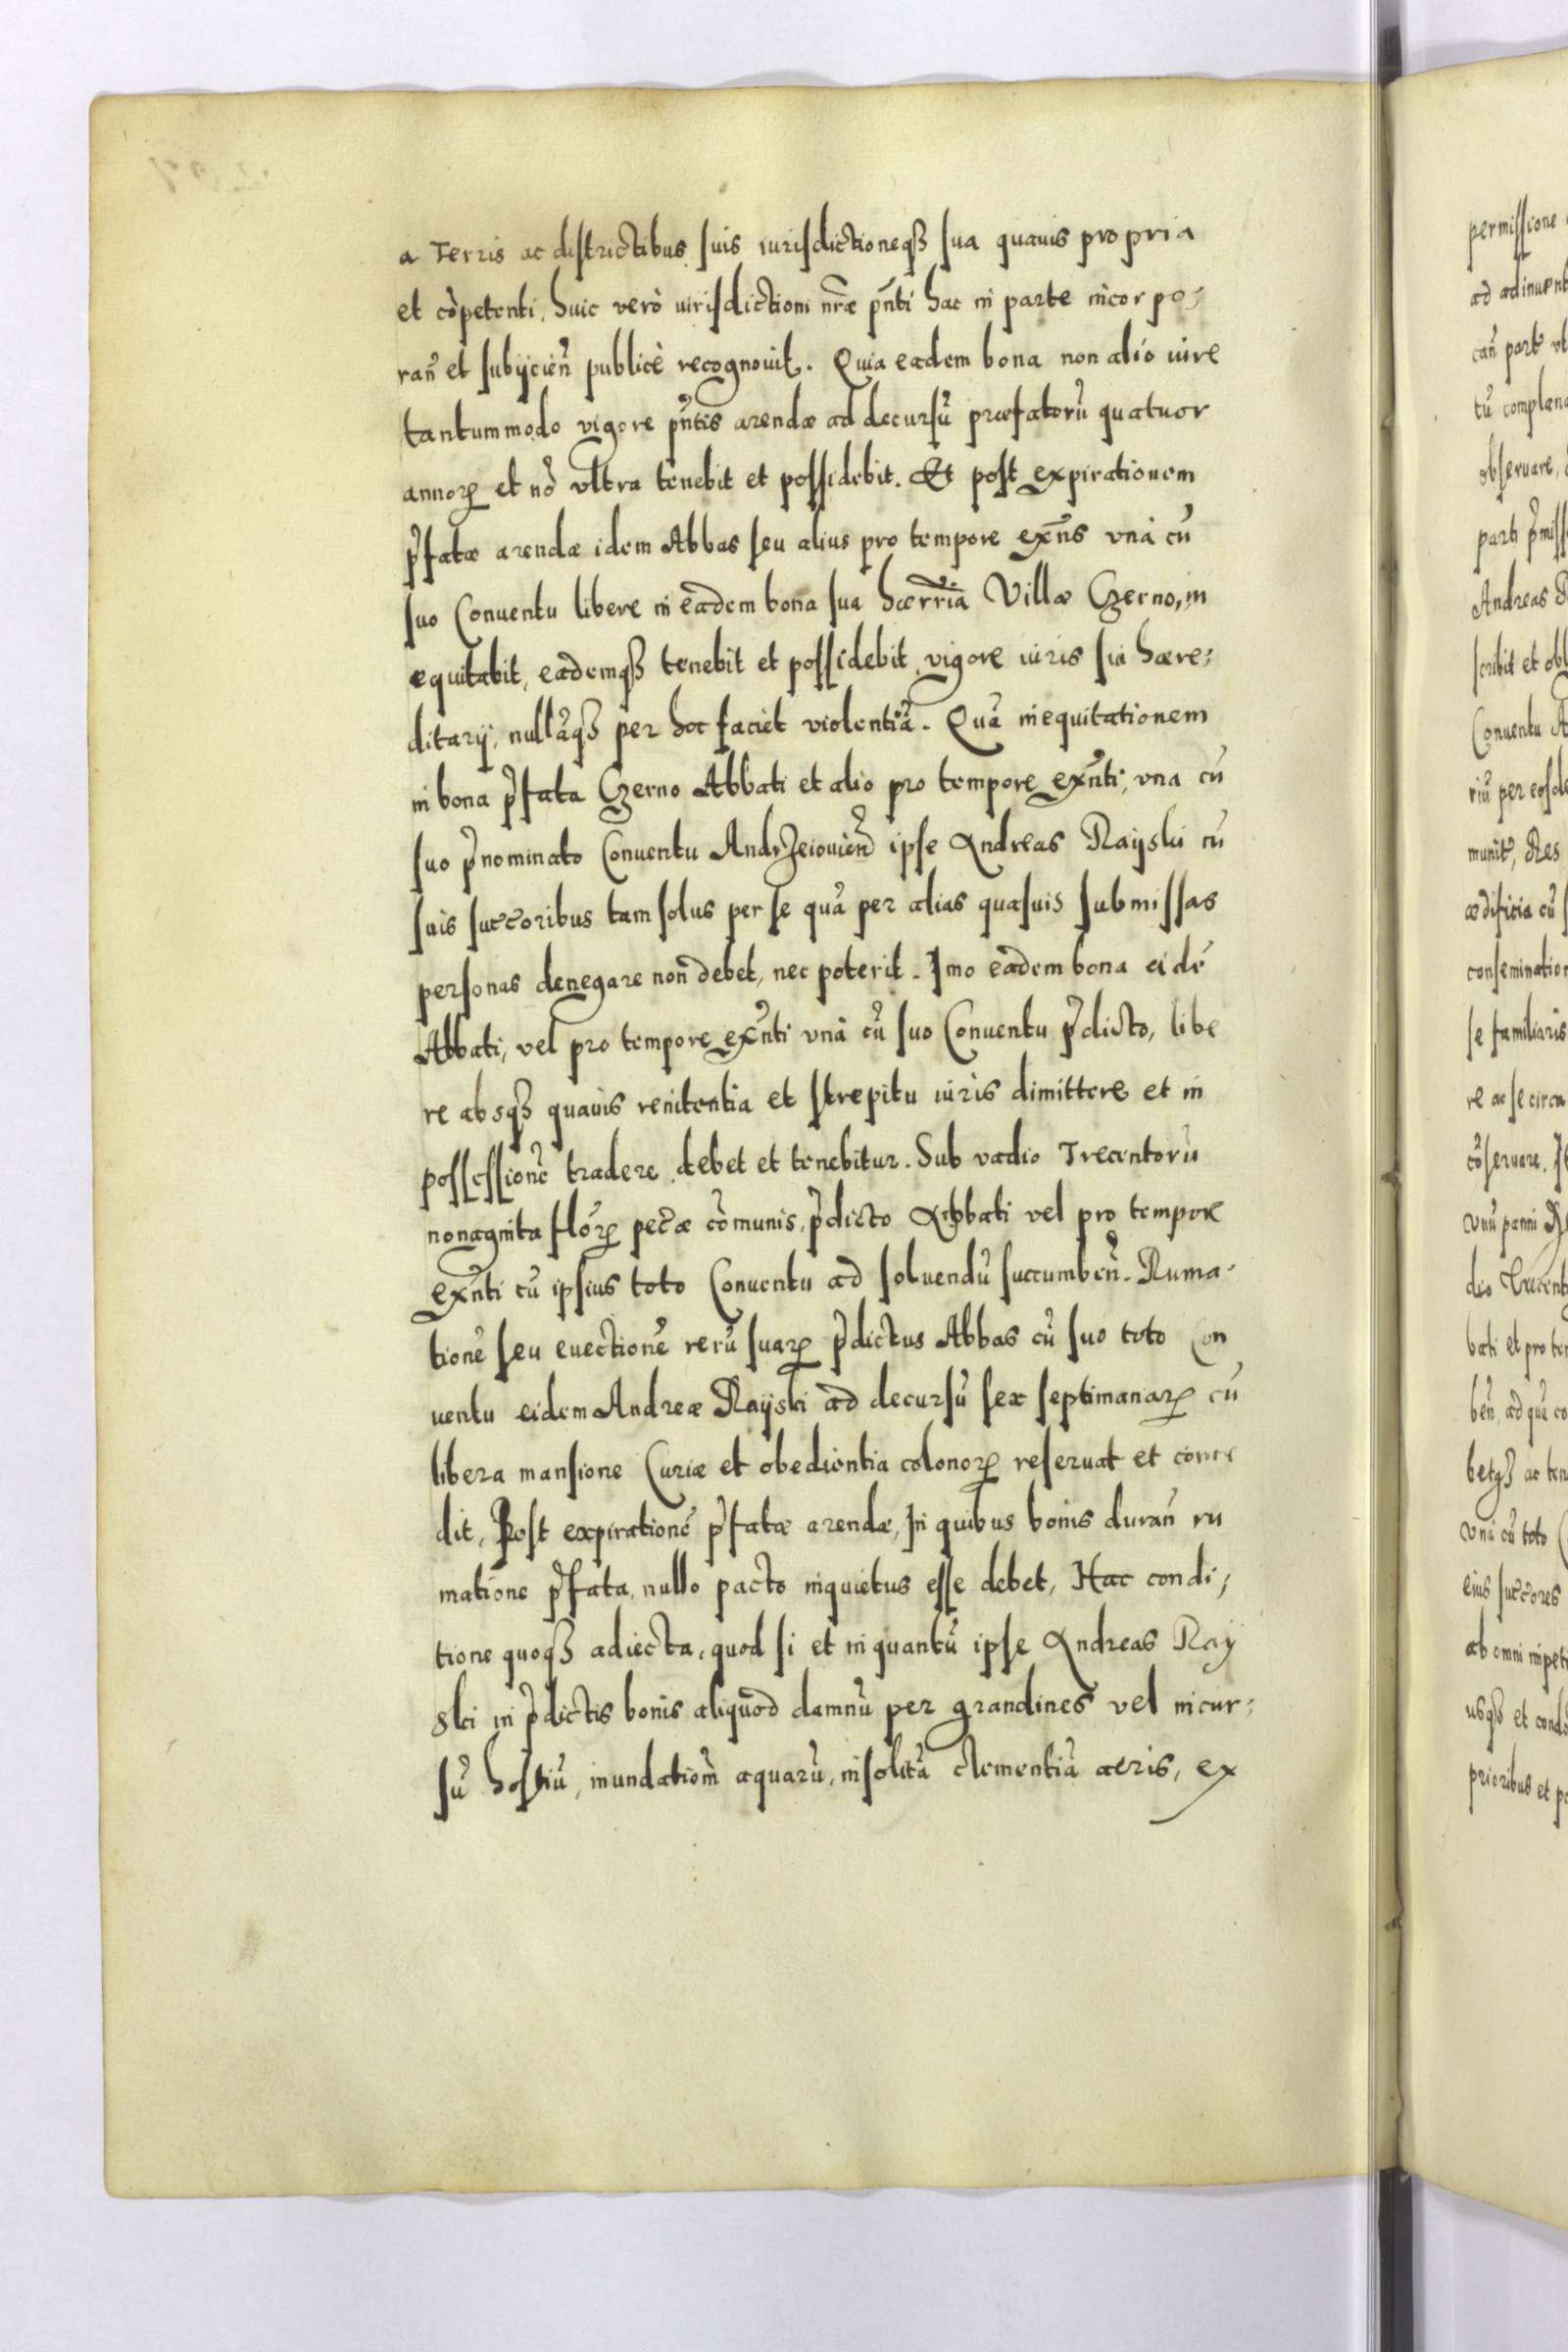 a Terris ac districtibus suis iurisdictioneqꝫ sua quavis propria
et cõpetenti, huic verò iurisdictioni nr̃æ pñti hac in parte incorpo⸗
rañ et subijcieñ publicè recognovit. Quia eadem bona non alio iure
tantummodo vigore pñtis arendæ ad decursũ præfatorũ quatuor
annoꝝ et nõ ultra tenebit et possidebit. Et post expirationem
p̃fatæ arendæ idem Abbas seu alius pro tempore exñs unà cũ
suo Conuentu libere in eadem bona sua hærria͂ Villæ Czerno, in
equitabit, eademqꝫ tenebit et possidebit vigore iuris sui hære⸗
ditarij, nullãqꝫ per hoc faciet violentiã. Quã inequitationem
in bona p̃fata Czerno Abbati et alio pro tempore exñti, una cũ
suo p̃nominato Conuentu Andrzeiouieñ ipse Andreas Raijski cũ
suis succoribus tam solus per se quã per alias quasuis submissas
personas denegare non debet, nec poterit. Imo eadem bona eidẽ
Abbati, vel pro tempore exñti unà cũ suo Conuentu p̃dicto, libe
re absqꝫ quauis renitentia et strepitu iuris dimittere et in
possessionẽ tradere debet et tenebitur. Sub vadio Trecentorũ
nonaginta flõꝝ pec̃æ cõmunis, p̃dicto Abbati vel pro tempore
exñti cũ ipsius toto Conuentu ad soluendũ succumbeñ. Ruma⸗
tionẽ seu euectionẽ rerũ suaꝝ p̃dictus Abbas cũ suo toto Con
uentu eidem Andreæ Raijski ad decursũ sex septimanaꝝ cũ
libera mansione Curiæ et obedientia colonoꝝ reseruat et conce
dit, Post expirationẽ p̃fatæ arendæ, In quibus bonis durañ ru
matione p̃fata, nullo pacto inquietus esse debet, Hac condi⸗
tione quoqꝫ adiecta, quod si et inquantũ ipse Andreas Raij
ski in p̃dictis bonis aliquod damnũ per grandines vel incur⸗
sũ hostiũ, inundatiom̃ aquarũ, insolitã clementiã aeris, ex
permissione
ad adinuent
cañ part
tũ complana
obseruare,
parti p̃miss
Andreas R
scribit et obl
Conuentu A
riũ per eosde
munit, Res
ædificia cũ s
conseminatio
se familiaris
re ac se circa
cõseruare. It
unũ panni
dio Trecent
bati et pro te
beñ, ad quẽ co
betqꝫ ac ten
unà cũ toto C
eius succores
ab omni impeti
usqꝫ et condi
prioribus et po